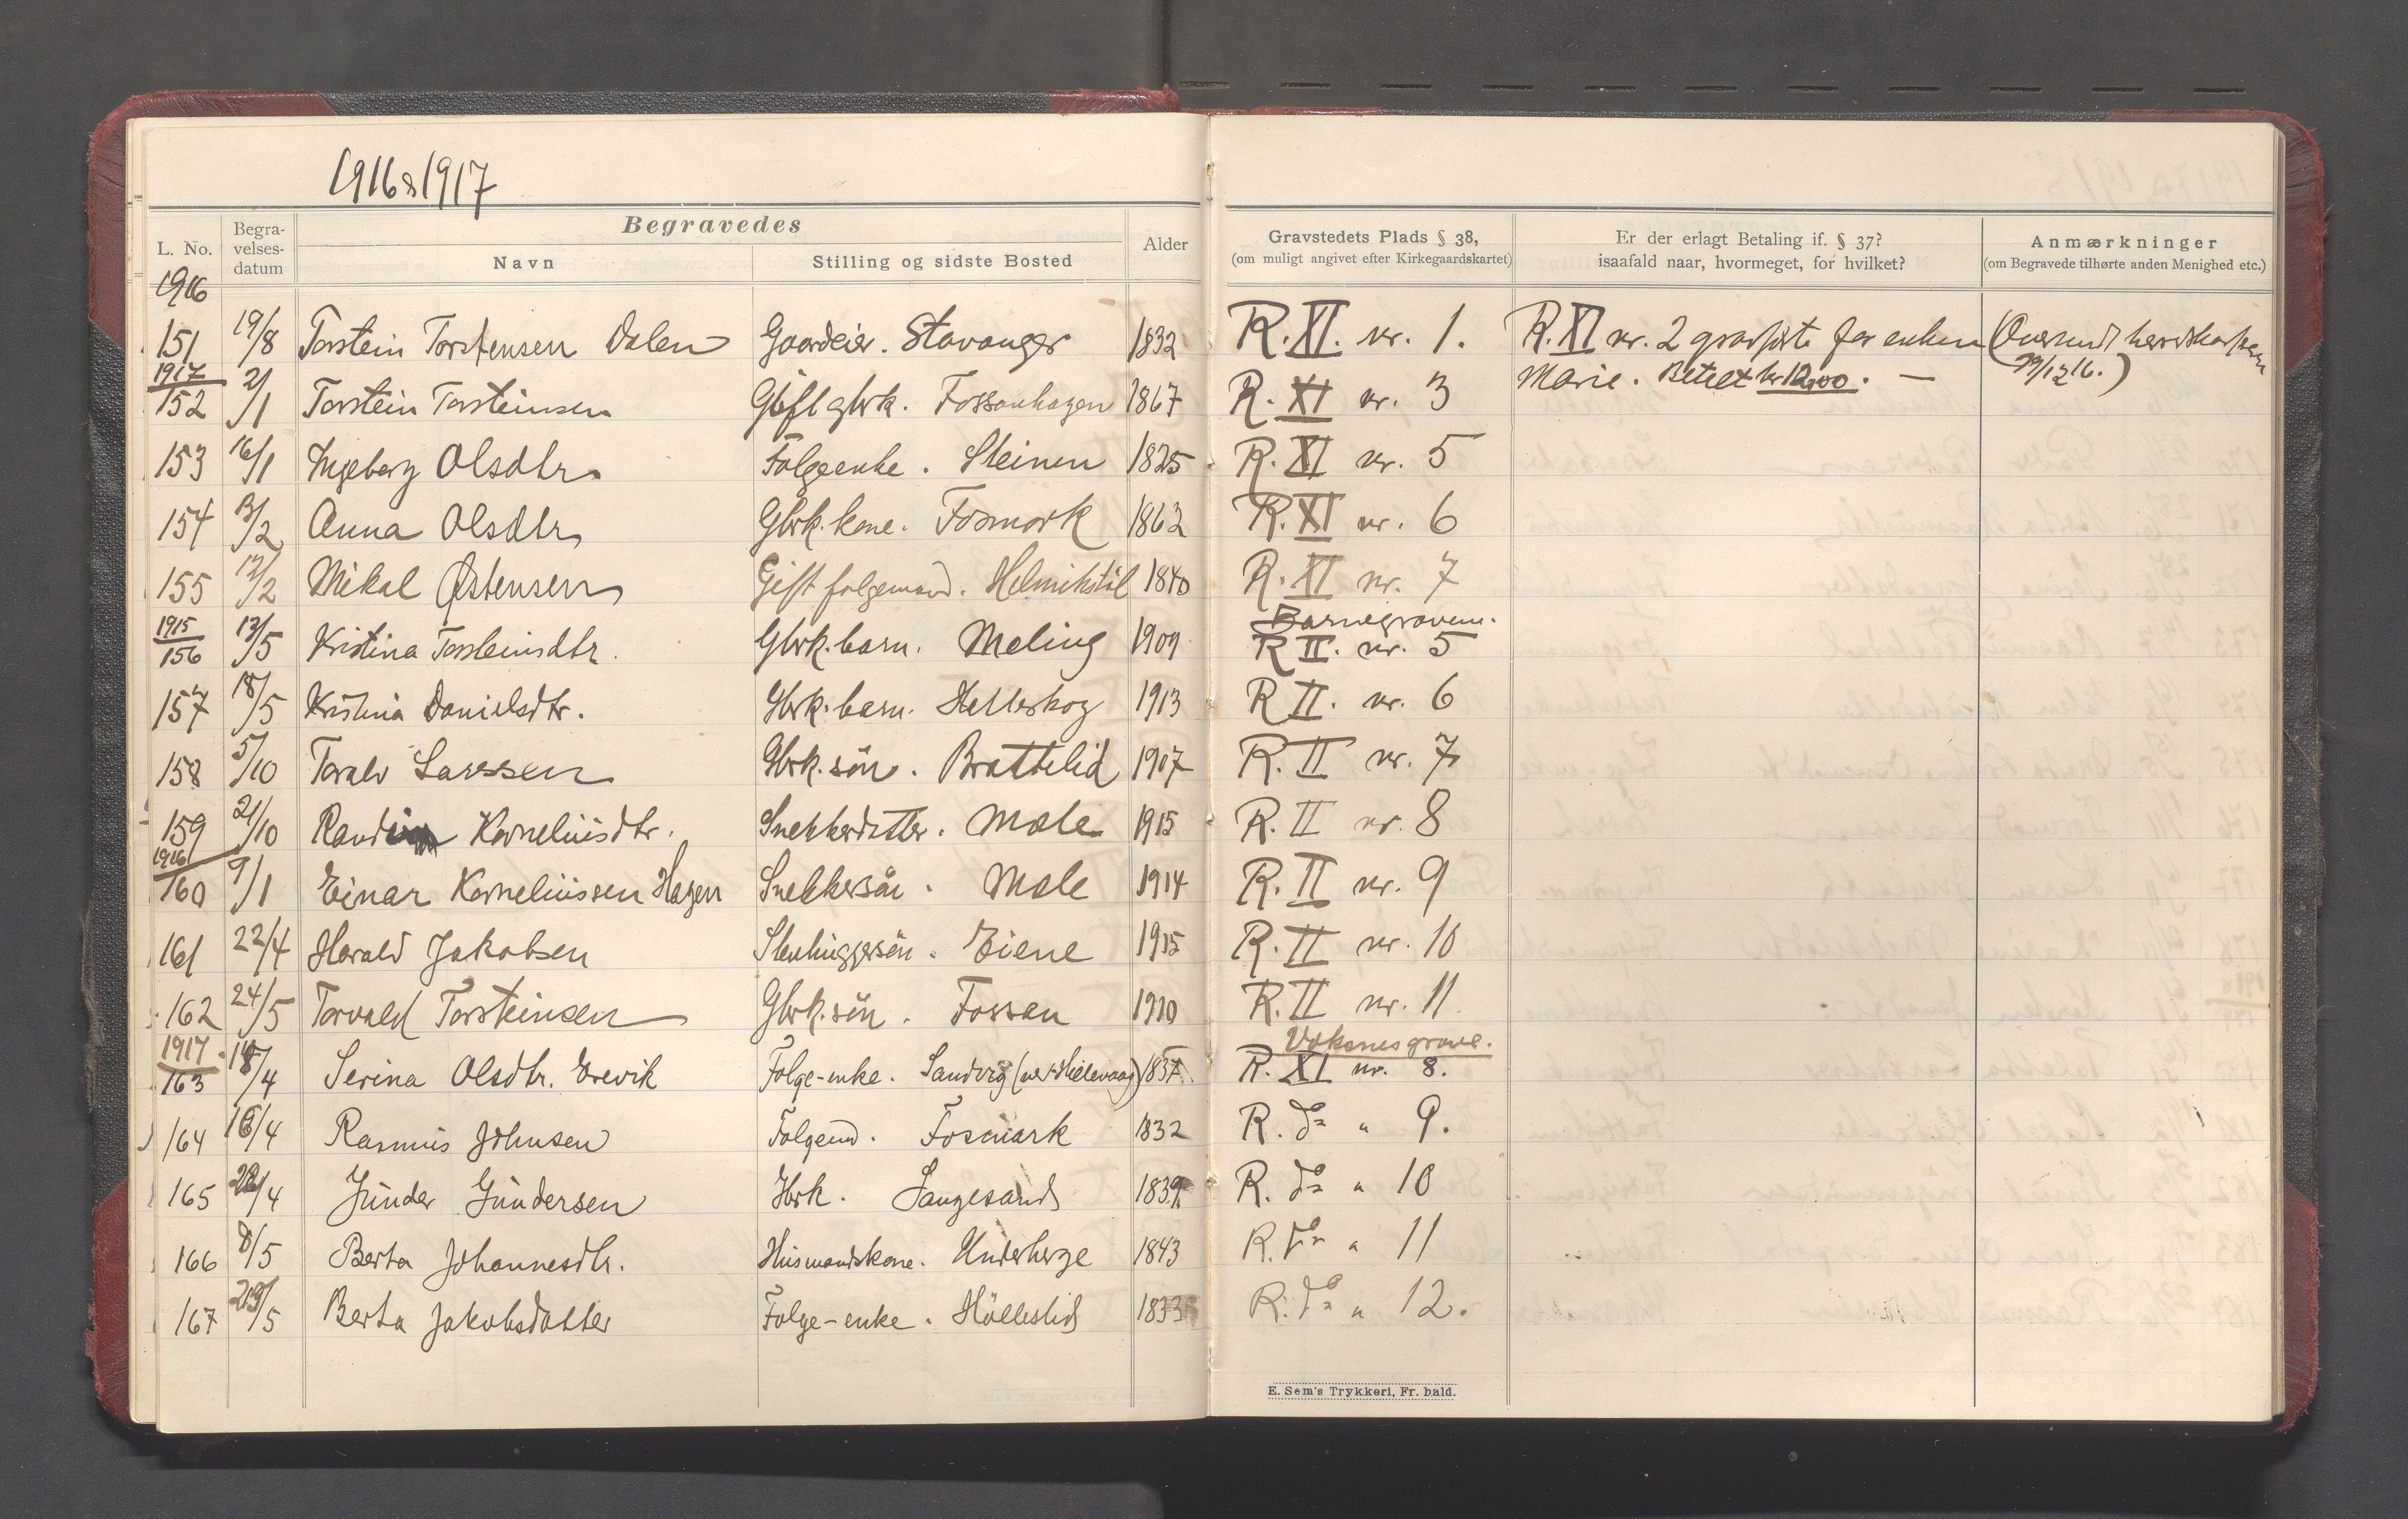 1916 & 1917
Begravedes
L. No. Begra-velses-datum Navn Stilling og sidste Bosted Alder Gravstedets Plads § 38, (om muligt angivet efter Kirkegaardskartet) Er der erlagt Betaling if. § 37? isaafald naar, hvormeget, for hvilket? Anmærkninger (om Begravede tilhørte anden Menighed etc.)
1916
151 19/8 Torstein Torstensen Dalen Gaardeier. Stavanger 1832 R. XI. nr. 1. R. XI nr. 2 for enken
Marie. Betalt kr 12,00. —
1917
152 2/1 Torstein Torsteinsen Gift gbrk. Fossanhagen 1867 R. XI nr. 3
153 16/1 Ingeborg Olsdtr. Folgeenke. Steinen 1825 R. XI nr. 5
154 13/2 Anna Olsdtr. Gbrk. kone. Fosmork 1862 R. XI nr. 6
155 17/2 Mikal Østensen Gift folgemand. Helmikstøl 1840 R. XI nr. 7
Barnegravene.
1915
156 13/5 Kristina Torsteinsdtr. Gbrk. barn. Meling 1909 R II. nr. 5
157 18/5 Kristina Danielsdtr. Gbrk. barn. Helleskog 1913 R II. nr. 6
158 5/10 Toralv Larssen Gbrk. sön. Brattelid 1907 R. II nr. 7
159 21/10 Randi Korneliusdtr. Snekkerdatter. Mæle 1915 R. II nr. 8
1916
160 9/1 Einar Korneliussen Hagen Snekkersön. Mæle 1914 R. II nr. 9
161 22/4 Harald Jakobsen Stenhuggersön. Eiene 1915 R. II nr. 10
162 24/5 Torvald Torsteinsen Gbrk. sön. Fossan 1910 R. II nr. 11.
Voksnes grave.
1917
163 /4 Serina Olsdtr. Ørevik Folge-enke. 1837. R. XI nr. 8.
164 16/4 Rasmus Johnsen Folgem. Fosmark 1832 R. do " 9.
165 /4 Gunder Gundersen Gbrk. Saugesand 1839 R. do " 10
166 8/5 Berta Johannesdtr. Husmandskone. Underberge 1843 R. do " 11
167 /5 Berta Jakobsdatter Folge-enke. Höllesli 1833 R. do " 12.
E. Sem's Trykkeri, Fr. hald.